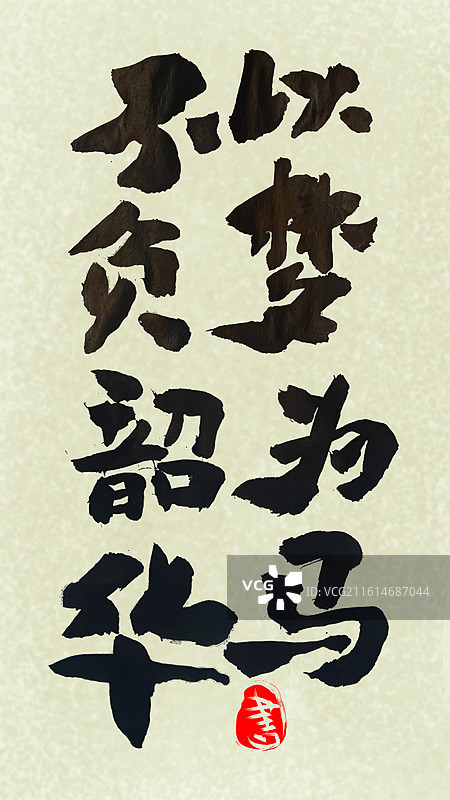 以梦为马
不负韶华
VCG
ID:VCG211614687044